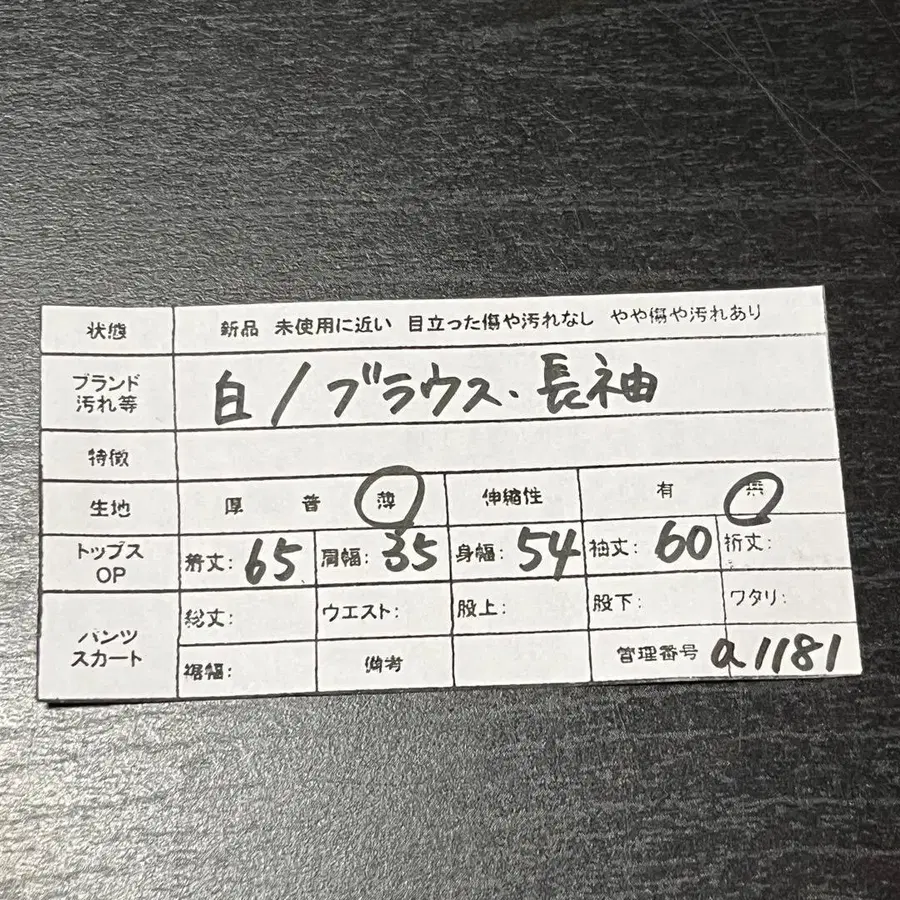 状態 新品 未使用に近い 目立った傷や汚れなし やや傷や汚れあり
ブランド
汚れ等
白/ブラウス、長袖
特徴
生地 厚 普 薄 伸縮性 有 無
トップス
OP
着丈:65 肩幅:35 身幅:54 袖丈:60 裄丈:
パンツ
スカート
総丈: ウエスト: 股上: 股下: ワタリ:
裾幅: 備考 管理番号 a1181